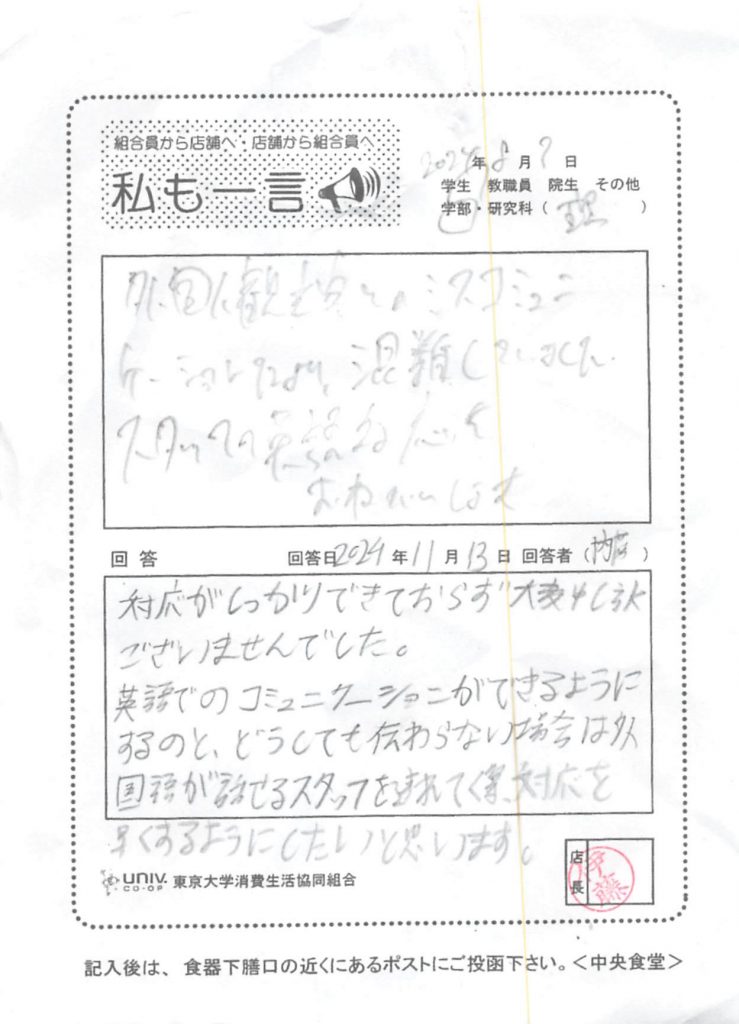 組合員から店舗へ・店舗から組合員へ
私も一言
2024年8月7日
学生 教職員 院生 その他
学部・研究科(理)
外国人観光客とのミスコミュニ
ケーションにより、混雑していました。
スタッフの英語対応を
おねがいします
回答 回答日2024年11月13日 回答者(内藤)
対応がしっかりできておらず大変申し訳
ございませんでした。
英語でのコミュニケーションができるように
するのと、どうしても伝わらない場合は外
国語が話せるスタッフを連れてく等、対応を
早くするようにしたいと思います。
店長
伊藤
UNIV.
CO-OP
東京大学消費生活協同組合
記入後は、食器下膳口の近くにあるポストにご投函下さい。<中央食堂>